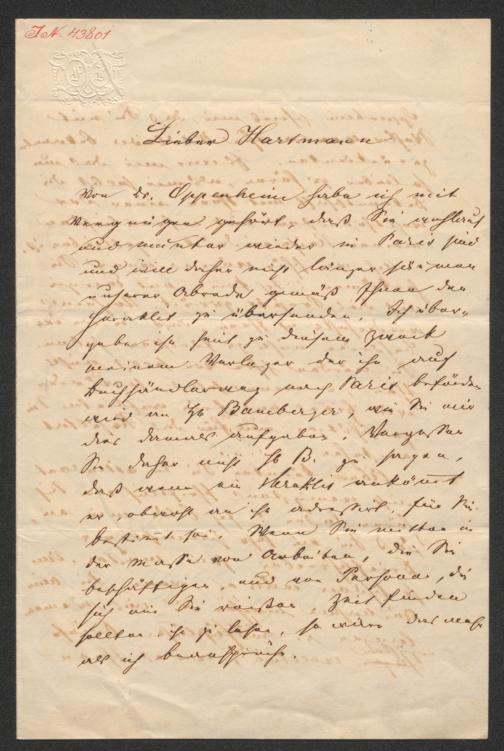 I.N. 43801
Lieber Hartmann
Von Dr. Oppenheim habe ich mit
Vergnügen gehört, daß Sie wohlauf
und munter wieder in Paris sind
und will daher nicht länger säumen
unserer Abrede gemäß Ihnen den
Heraklit zu übersenden. Ich über-
gebe ihn heut zu diesem Zweck
meinem Verleger der ihn auf
Buchhändlerweg nach Paris befördern
wird an Hr Bamberger, wie Sie mir
dies damals aufgaben. Vergessen
Sie daher nicht Hr B. zu sagen,
daß wenn ein Heraklit ankömmt
er, obwohl an ihn adressirt, für Sie
bestimmt sei. Wenn Sie mitten in
der Masse von Arbeiten, die Sie
beschäftigen, und von Personen, die
sich um Sie reißen, Zeit finden
sollten ihn zu lesen, so wäre das mehr
als ich beanspruche.